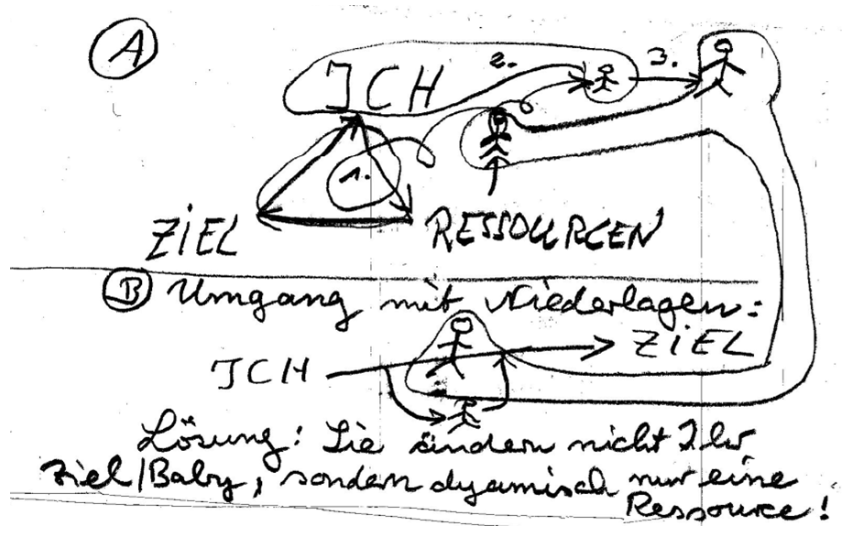 A
ICH 2. 3.
1.
ZiEL RESSOURCEN
B Umgang mit Niederlagen:
ICH ZiEL
Lösung: Sie ändern nicht Ihr
Ziel/Baby, sondern dyamisch nur eine
Ressource!